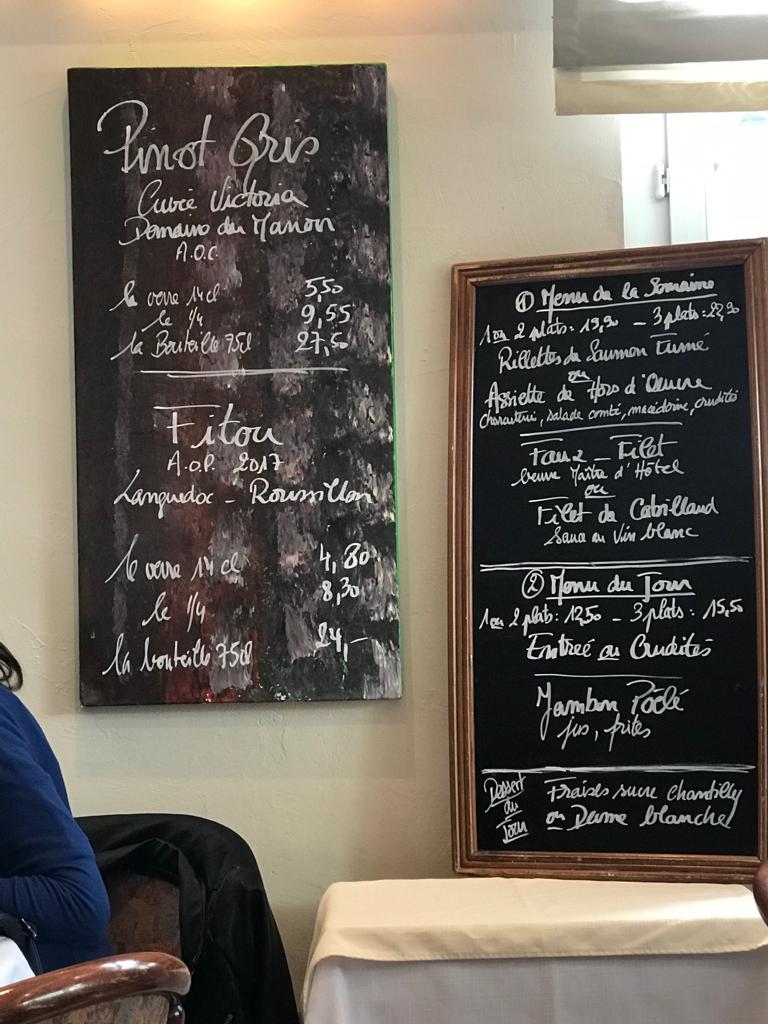 Pinot Gris
Cuvée Victoria
Domaine du Manon
A.O.C.
le verre 14cl 5,50
le 1/4 9,55
la Bouteille 75cl 27,50
Fitou
A.O.P. 2017
Languedoc - Roussillon
le verre 14 cl 4,80
le 1/4 8,30
la bouteille 75cl 24,-
① Menu de la Semaine
1 ou 2 plats: 19,90 - 3 plats: 22,90
Rillettes de Saumon Fumé
ou
Assiette de Hors d'Oeuvre
charcuterie, salade comté, macédoine, crudités
Faux - Filet
beurre Maître d'Hôtel
ou
Filet de Cabillaud
Sauce au Vin blanc
② Menu du Jour
1 ou 2 plats: 12,50 - 3 plats: 15,50
Entrée ou Crudités
Jambon Poêlé
jus, frites
Dessert
du
Jour
Fraises sucre Chantilly
ou Dame blanche